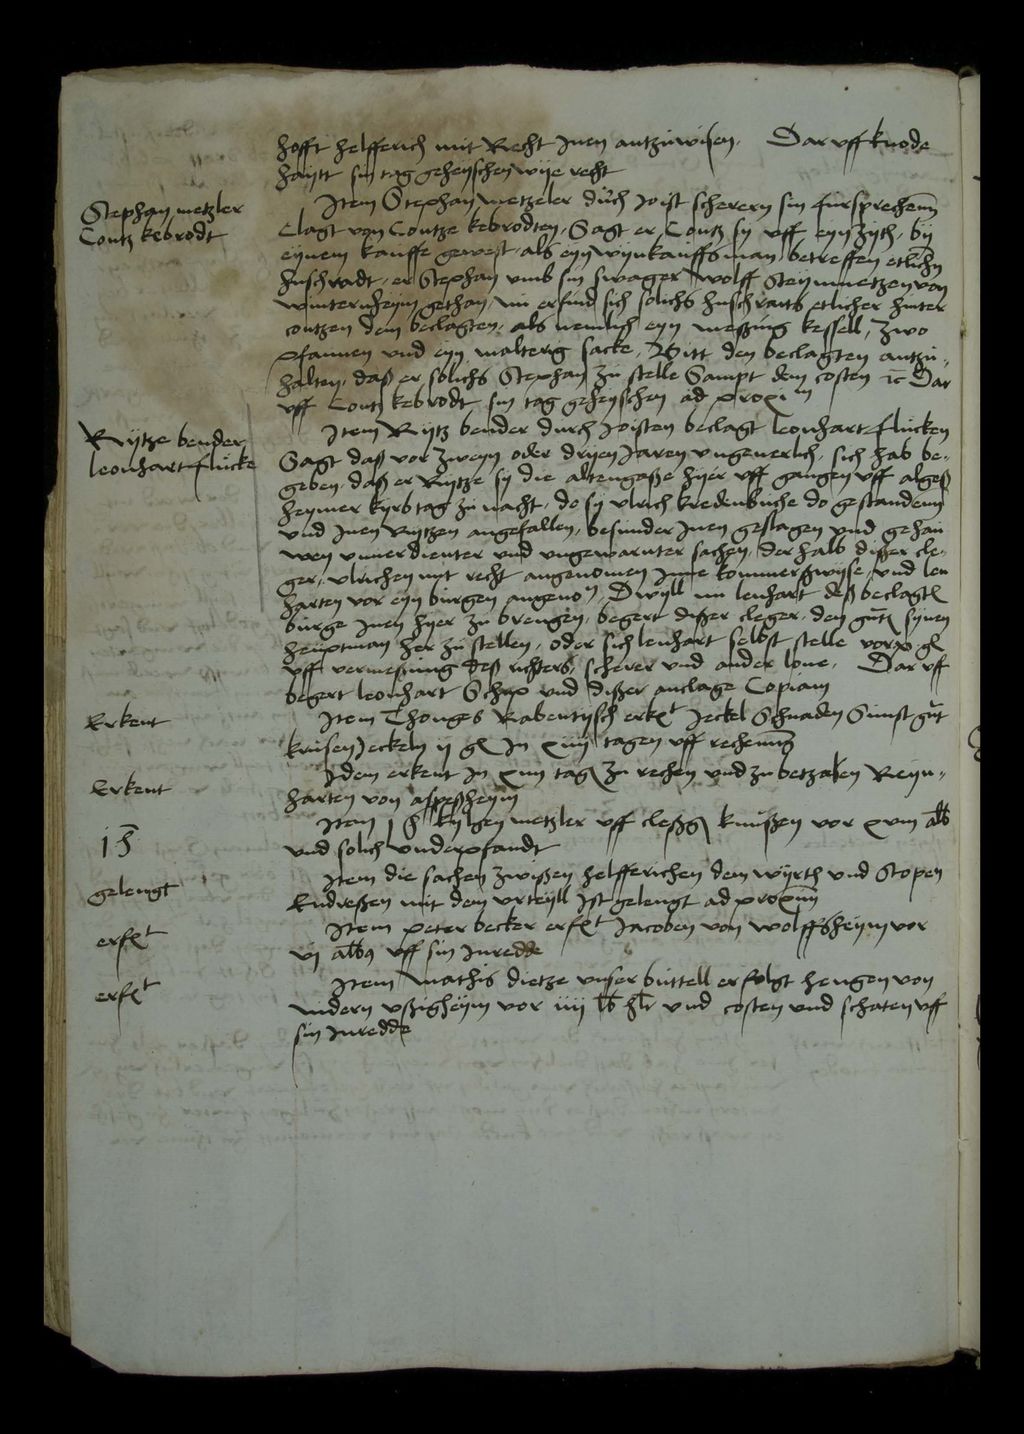 hofft helfferich mit Recht Inen antzuwisen. Dar uff knode
haytt sin tag geheyschen wye recht
Stephan metzler
Contz kebrodt
Item Stephan metzeler durch Joist scherern sin fursprechenn
clagt von Contze kebrodten, Sagt er Contz sy uff eyn zyth, by
eynem kauffe gewest, als eyn wynkauffsman betreffen etlichen
hußradt, er Stephan umb sin swager wolff Steynmetzen von
winternheym gethan, nu erfind sich solichs hußradts etlicher hinter
contzen dem beclagten, als nemlich eyn messing kessell, zwo
pfannen und eyn malterig sacke, Bitt den beclagten antzu-
halten, daß er solichs Stephan zu stelle Sampt dem costen etc Dar
uff Contz kebrodt sin tag geheyschen ad proxim
Rytze bender
leonhart flucke
Item Rytz bender durch Joisten beclagt leonhart flucken
Sagt daß vor zweyn oder dryen Jaren ungeverlich, sich hab be-
geben, daß er Rytze sy die altengaße hyer uff gangen uff algeß
heymer kyrbtag zu nacht, do sy ulrich kredenbuche do gestandenn
und Inen Rytzen angefallen, besunder Inen geslagen und gehau
wen unverdienter und ungewarnter sachen, der halb disser cle-
ger, ulrichen mit recht angenomen Inne kommerßwyse, und len
harten vor eyn burgen angenomen, Dwyll nu lenhart deß beclagten
burge Inen hyer zu brengen, begert disser cleger, den guten synen
heuptman her zu stellen, oder sich lenhart selbst stelle
uff vermessung deß richters, scherer und ander lone, Dar uff
begert leonhart Schyp und disser anclage Copiam
Erkent
Item Thonges Rabentysch Jeckel Schnaden Sunst gut
krusen Jeckeln ij gl In xiiij tagen uff rechenung
Erkent
Idem erkent In xiiij tagen zu rechen und zu betzalen Reyn-
harten von aspeßheym
1 h
Item 1 h kylgen metzler uff cleßgen knußen vor xviij alb
und solich underpfandt
gelengt
Item die sachen zwißen helfferichen dem wyrth und Stopen
Endreßen mit dem urteyll Ist gelengt ad proximum
erfolgt
Item peter becker erfolgt Jacoben von wolffsheym vor
vj albus uff sin Inredde
erfolgt
Item mathis dietze unser buttell erfolgt hengen von
nidern ußigheym vor iiij lb hlr und costen und schaten uff
sin Inredde